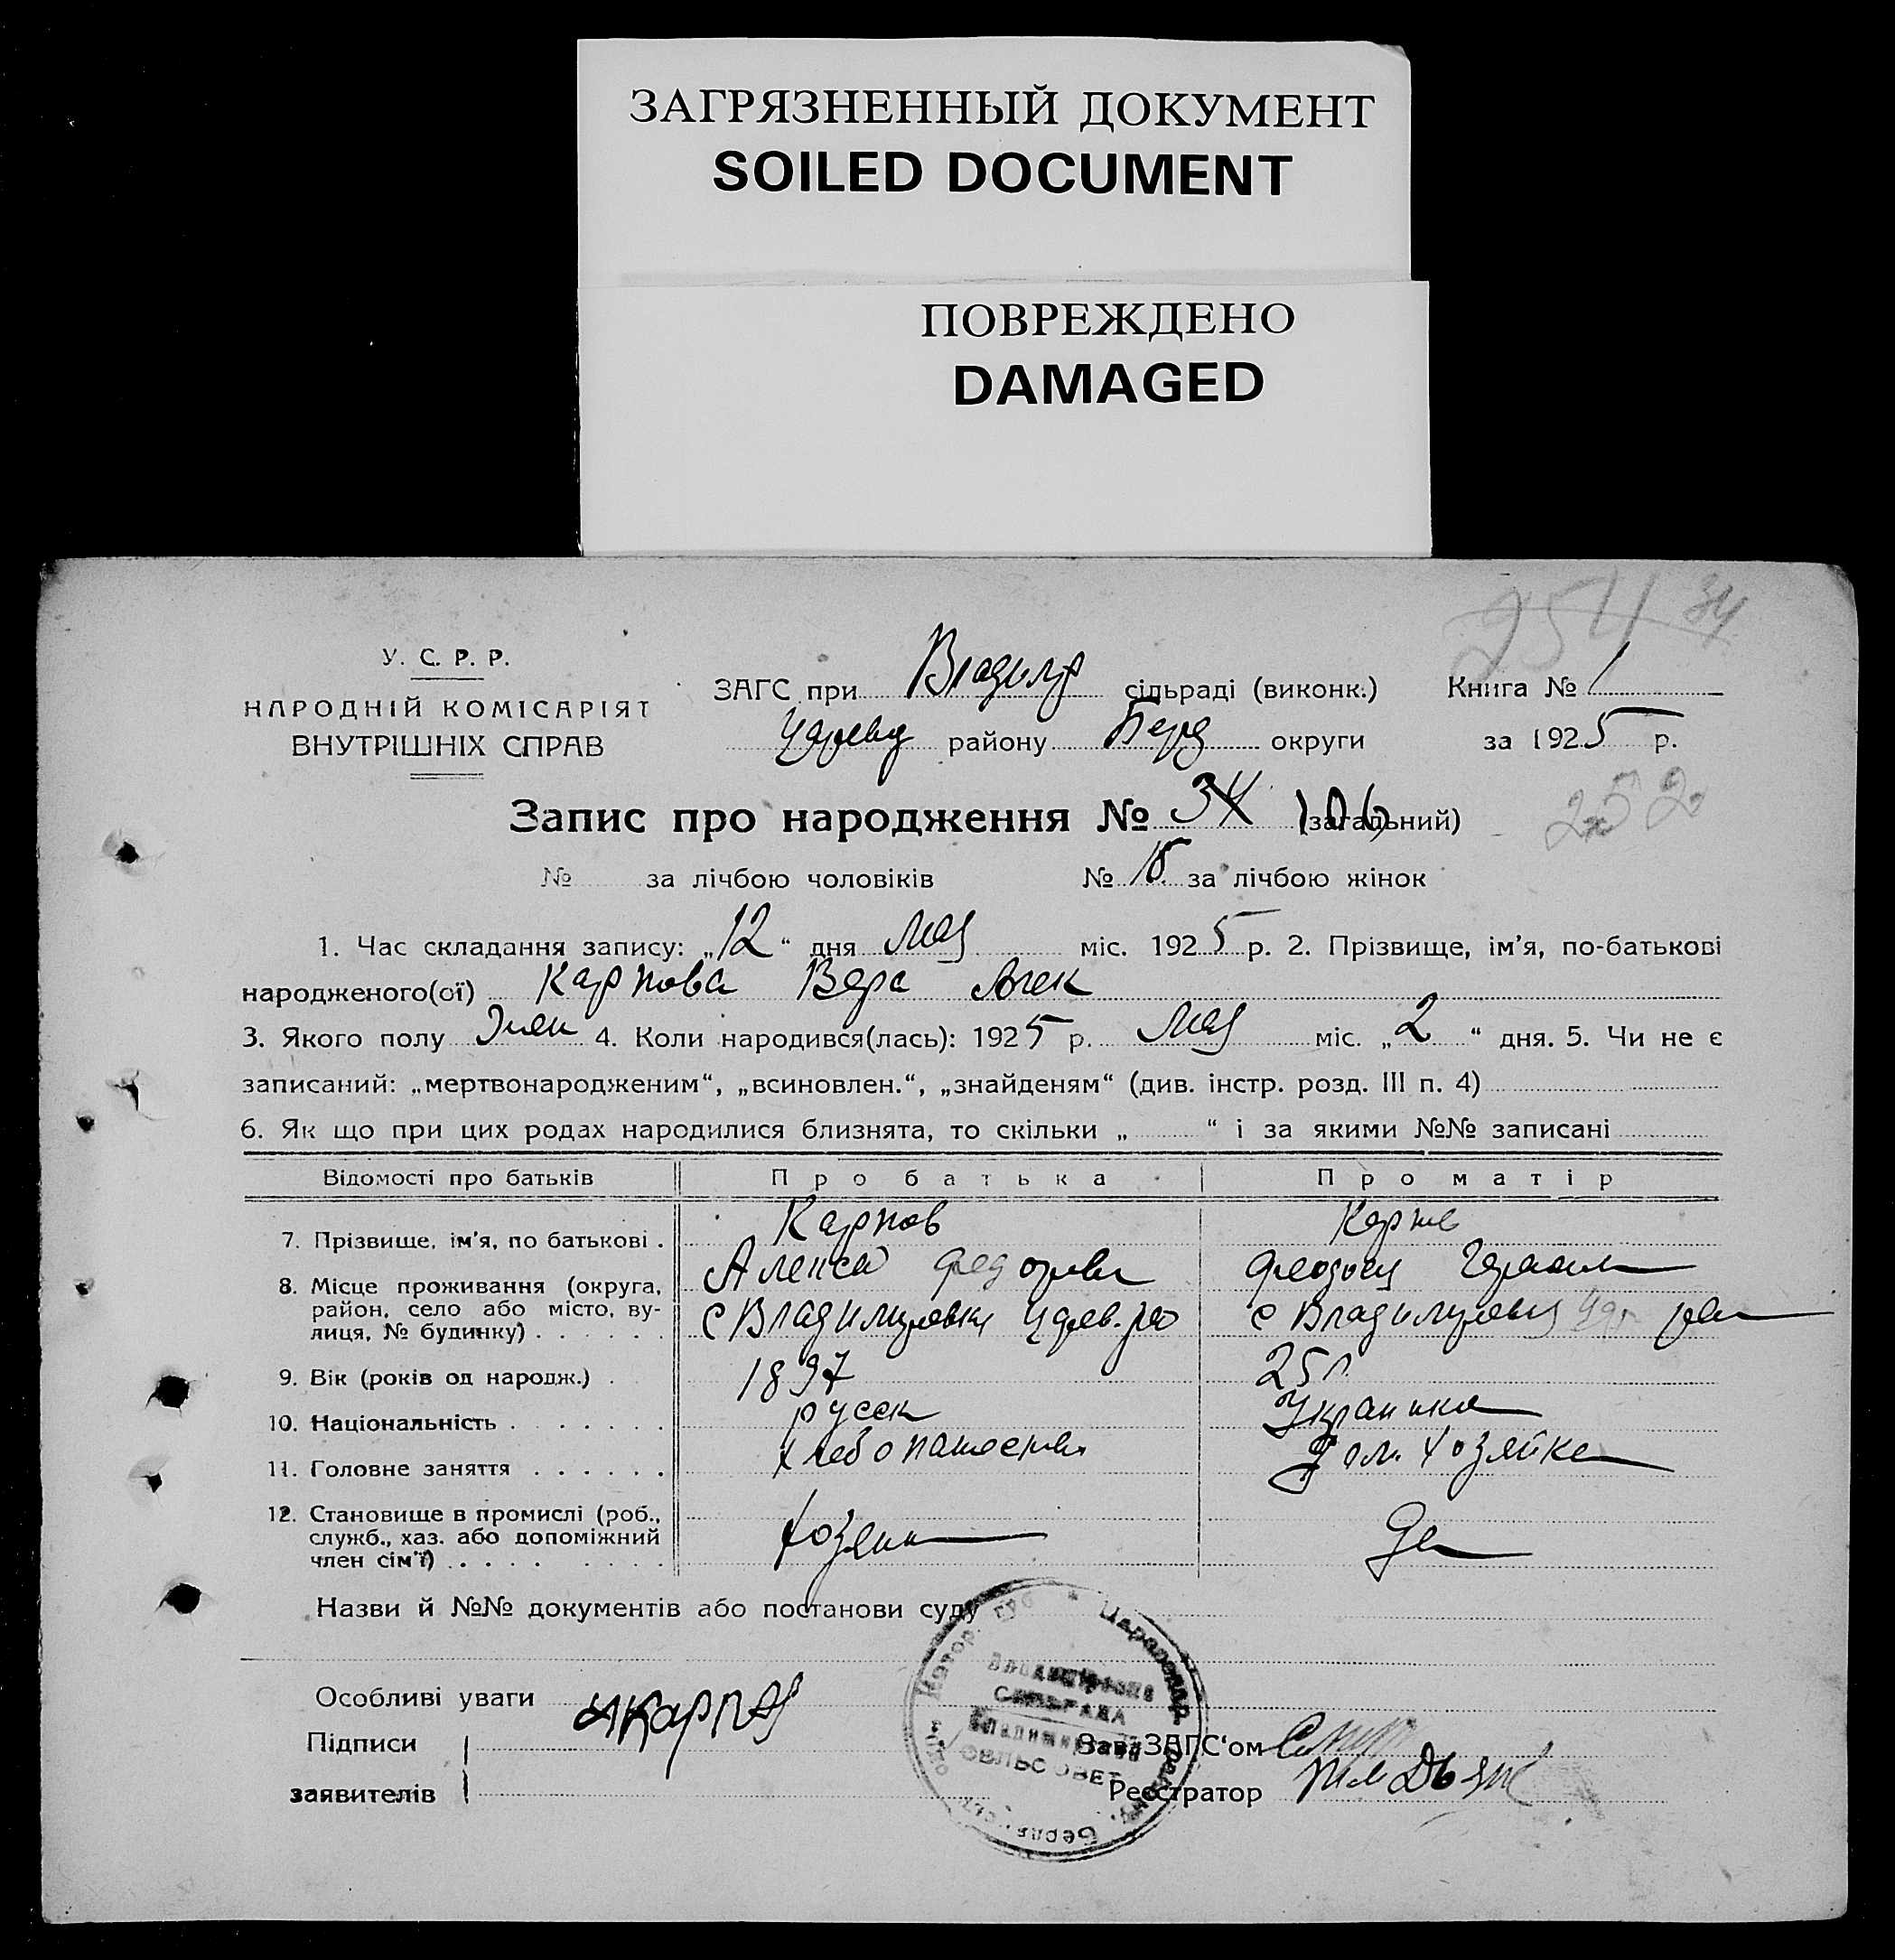 ЗАГРЯЗНЕННЫЙ ДОКУМЕНТ
SOILED DOCUMENT
ПОВРЕЖДЕНО
DAMAGED
254 34
У. С. Р. Р.
НАРОДНІЙ КОМІСАРІЯТ
ВНУТРІШНІХ СПРАВ
ЗАГС при Владимр сільраді (виконк.) Книга № 1
району Берд округи за 1925 р.
Запис про народження № 34 106 (загальний) 252
№ за лічбою чоловіків № 18 за лічбою жінок
1. Час складання запису: „12“ дня мая міс. 1925 р. 2. Прізвище, ім’я, по-батькові
народженого(ої) Карпова Вера Алек
3. Якого полу Жен 4. Коли народився(лась): 1925 р. мая міс. „2“ дня. 5. Чи не є
записаний: „мертвонародженим“, „всиновлен.“, „знайденям“ (див. інстр. розд. III п. 4)
6. Як що при цих родах народилися близнята, то скільки „ “ і за якими №№ записані
Відомості про батьків Про батька Про матір
7. Прізвище, ім’я, по батькові . Карпов
Алексей Федорович
8. Місце проживання (округа, район, село або місто, вулиця, № будинку) . . . . . . с Владимировка с Владимировка
9. Вік (років од народж.) . 1897 25 л.
10. Національність . . . . . . . русск Украинка
11. Головне заняття . . . . . . хлебопашество Дом. хозяйка
12. Становище в промислі (роб., служб., хаз. або допоміжний член сім’ї) . . . . . . . . Хозяин
Назви й №№ документів або постанови суду
Особливі уваги
Підписи
заявителів
Зав. ЗАГС‘ом
Реєстратор
СІЛЬРАДА
СЕЛЬСОВЕТ